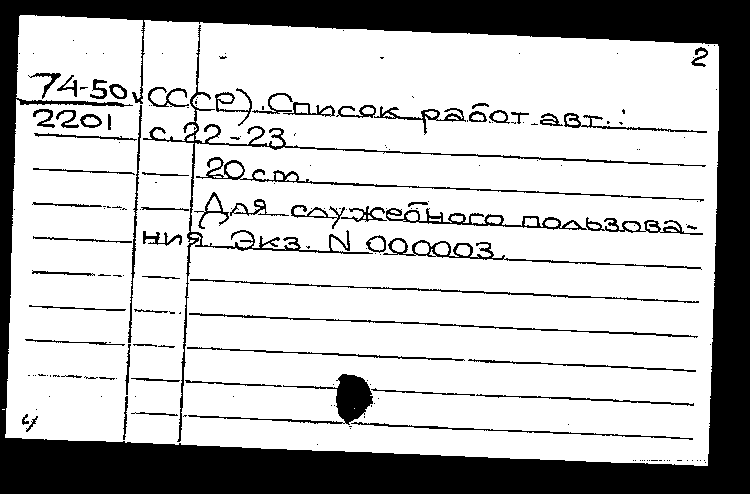 2
74-50 СССР). Список работ авт.:
2201 с. 22-23
20 см.
Для служебного пользова-
ния. Экз. N 000003.